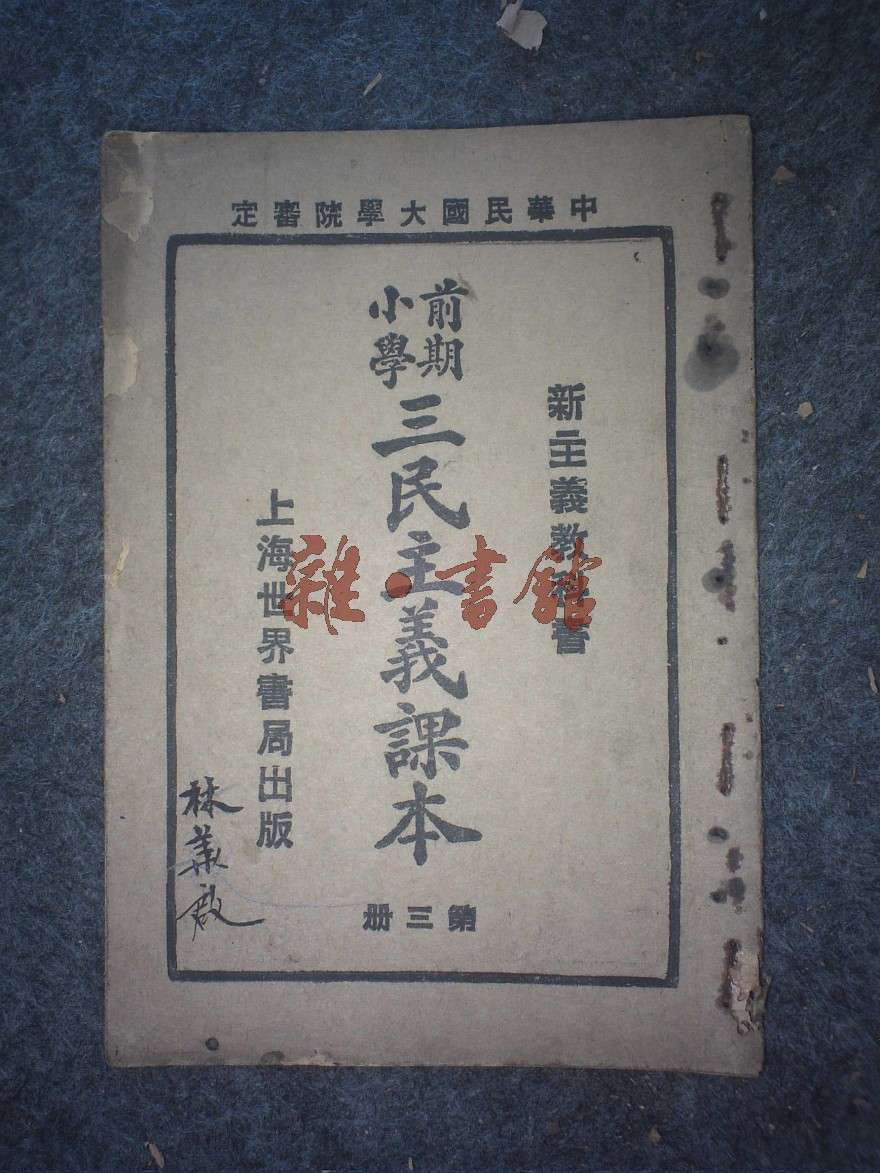 中華民國大學院審定
新主義教科書
前期
小學
三民主義課本
第三册
上海世界書局出版
雜·書館